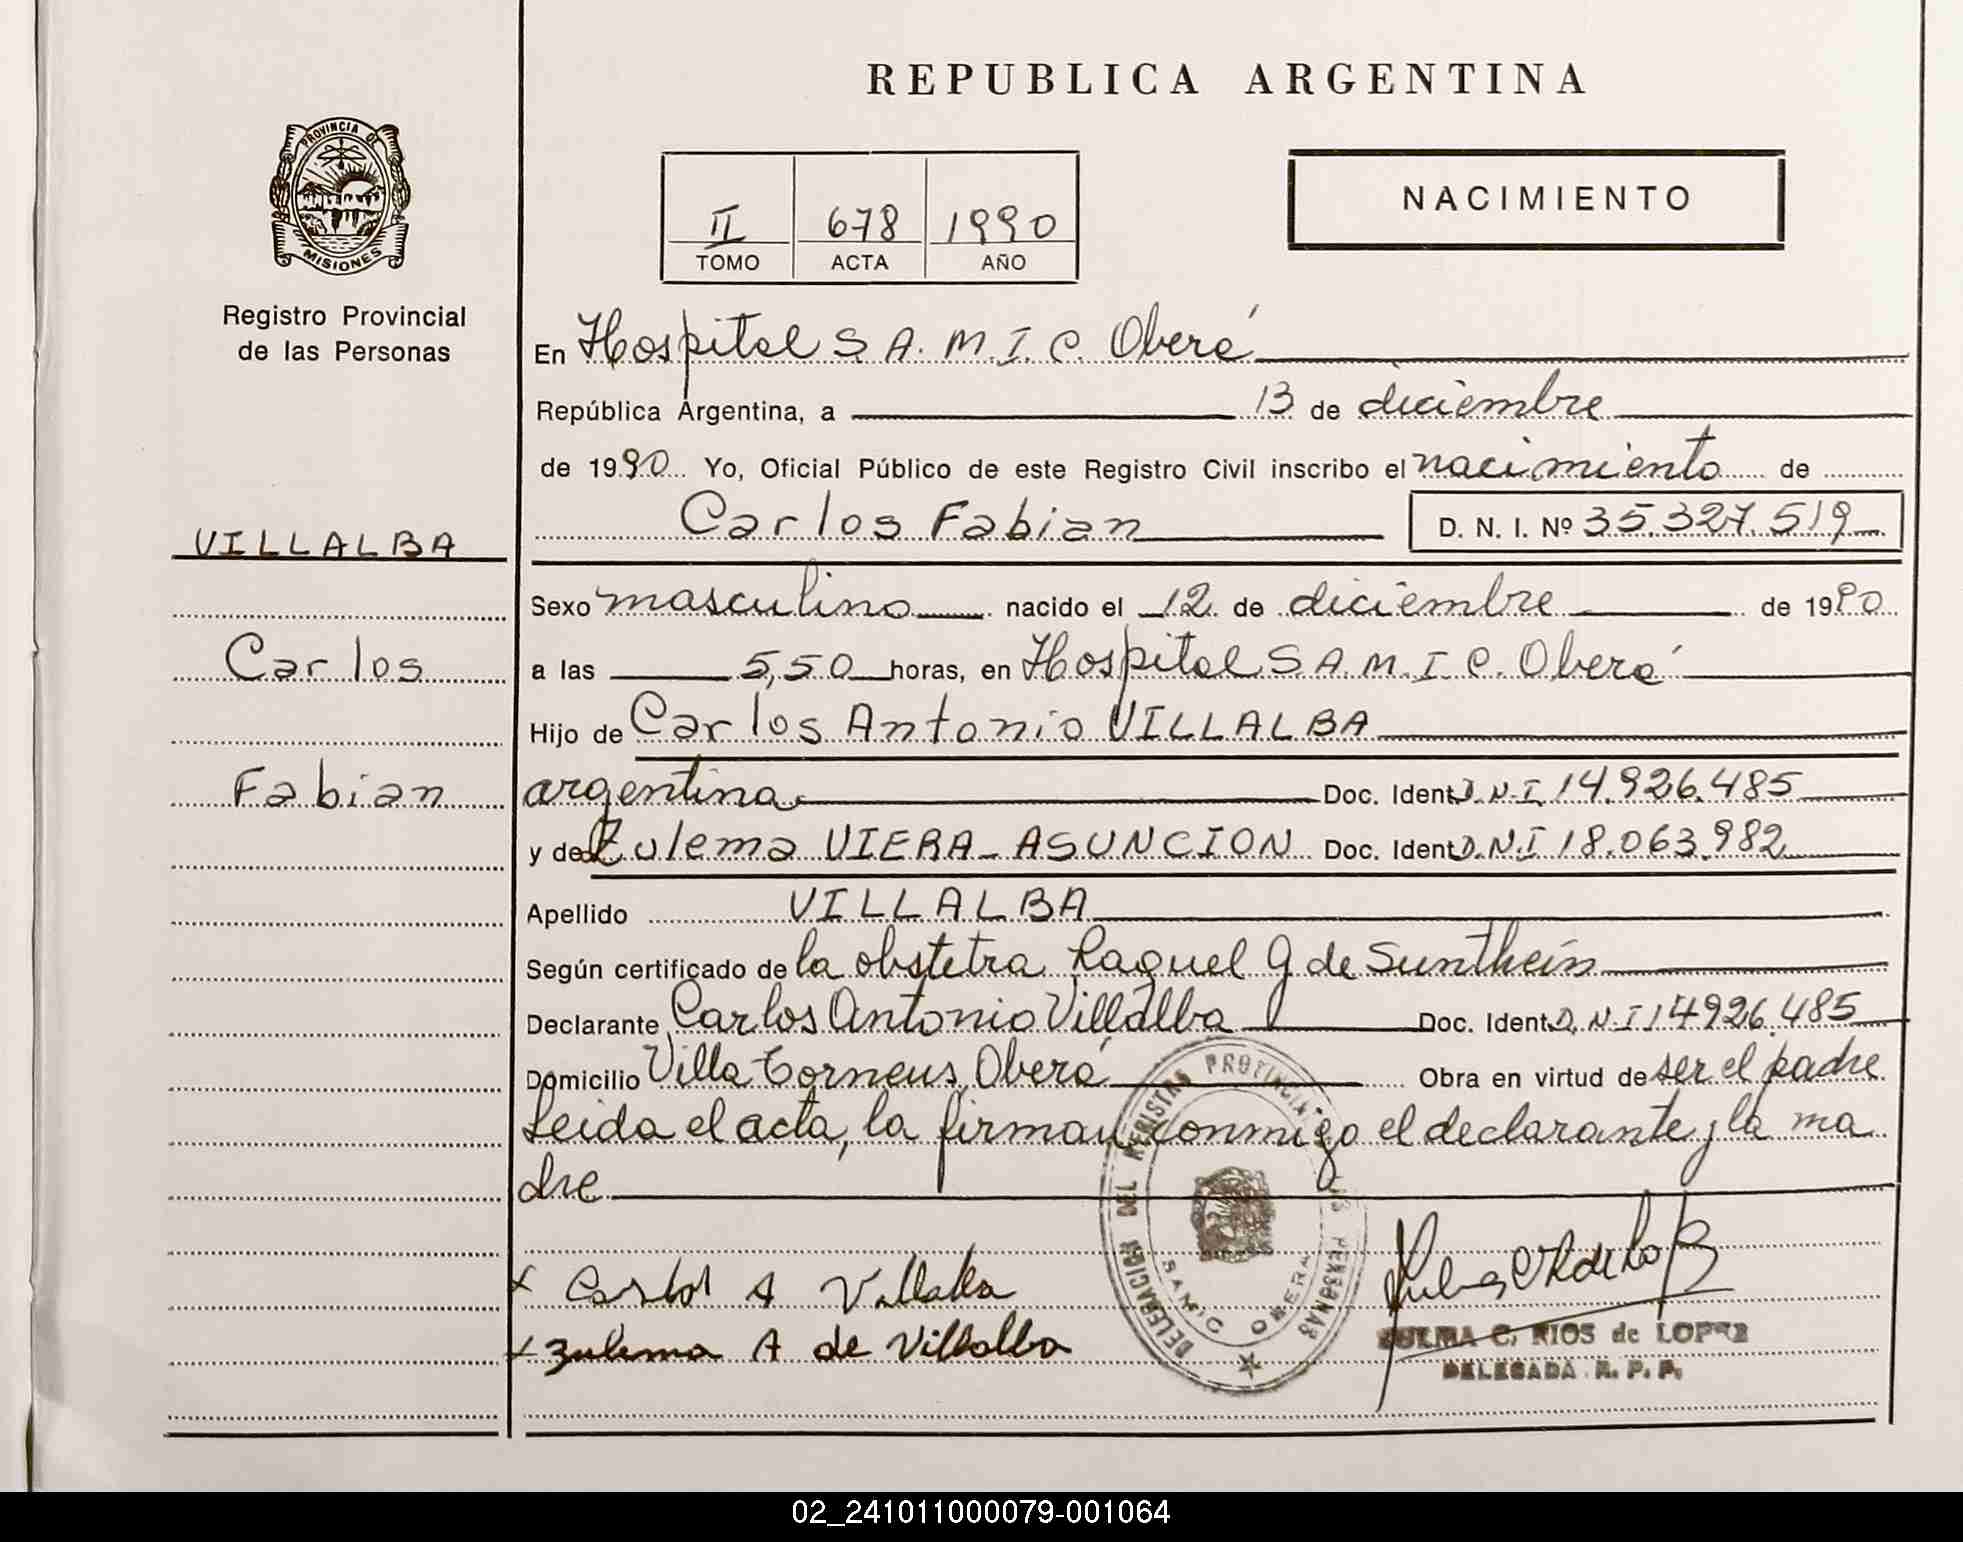 REPUBLICA ARGENTINA
PROVINCIA DE
MISIONES
Registro Provincial
de las Personas
II 678 1990
TOMO ACTA AÑO
NACIMIENTO
En Hospital S.A.M.I.C. Oberá
República Argentina, a 13 de diciembre
de 1990 Yo, Oficial Público de este Registro Civil inscribo el nacimiento de
Carlos Fabian D. N. I. Nº 35.327.519
VILLALBA
Carlos
Fabian
Sexo masculino nacido el 12 de diciembre de 1990
a las 5,50 horas, en Hospital S.A.M.I.C. Oberá
Hijo de Carlos Antonio VILLALBA
argentina Doc. Ident D.N.I. 14.926.485
y de Zulema VIERA - ASUNCION Doc. Ident D.N.I 18.063.982
Apellido VILLALBA
Según certificado de la obstetra Raquel G de
Declarante Carlos Antonio Villalba Doc. Ident D.N.I 14926.485
Domicilio Villa Oberá Obra en virtud de ser el padre
Leida el acta, la firman conmigo el declarante y la ma
dre
DELEGACION DEL REGISTRO PROVINCIAL DE LAS PERSONAS
SAMIC OBERA
x Carlos A Villalba
x Zulema A de Villalba
ZULMA C. RIOS de LOPEZ
DELEGADA R. P. P.
02_241011000079-001064